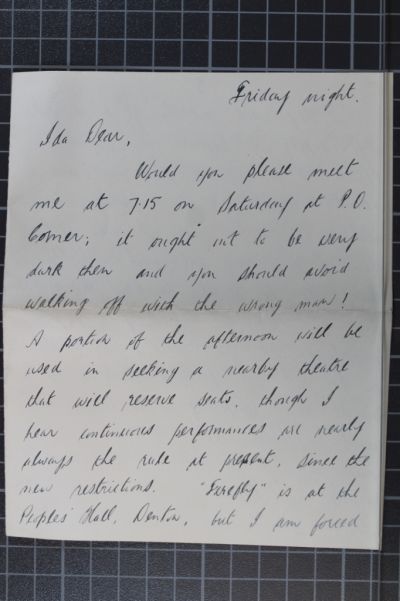 Friday night.
Ida Dear,
Would you please meet
me at 7.15 on Saturday at P.O.
Corner; it ought not to be very
dark then and you should avoid
walking off with the wrong man!
A portion of the afternoon will be
used in seeking a nearby theatre
that will reserve seats, though I
hear continuous performances are nearly
always the rule at present, since the
new restrictions. "Firefly" is at the
Peoples' Hall, Denton, but I am forced